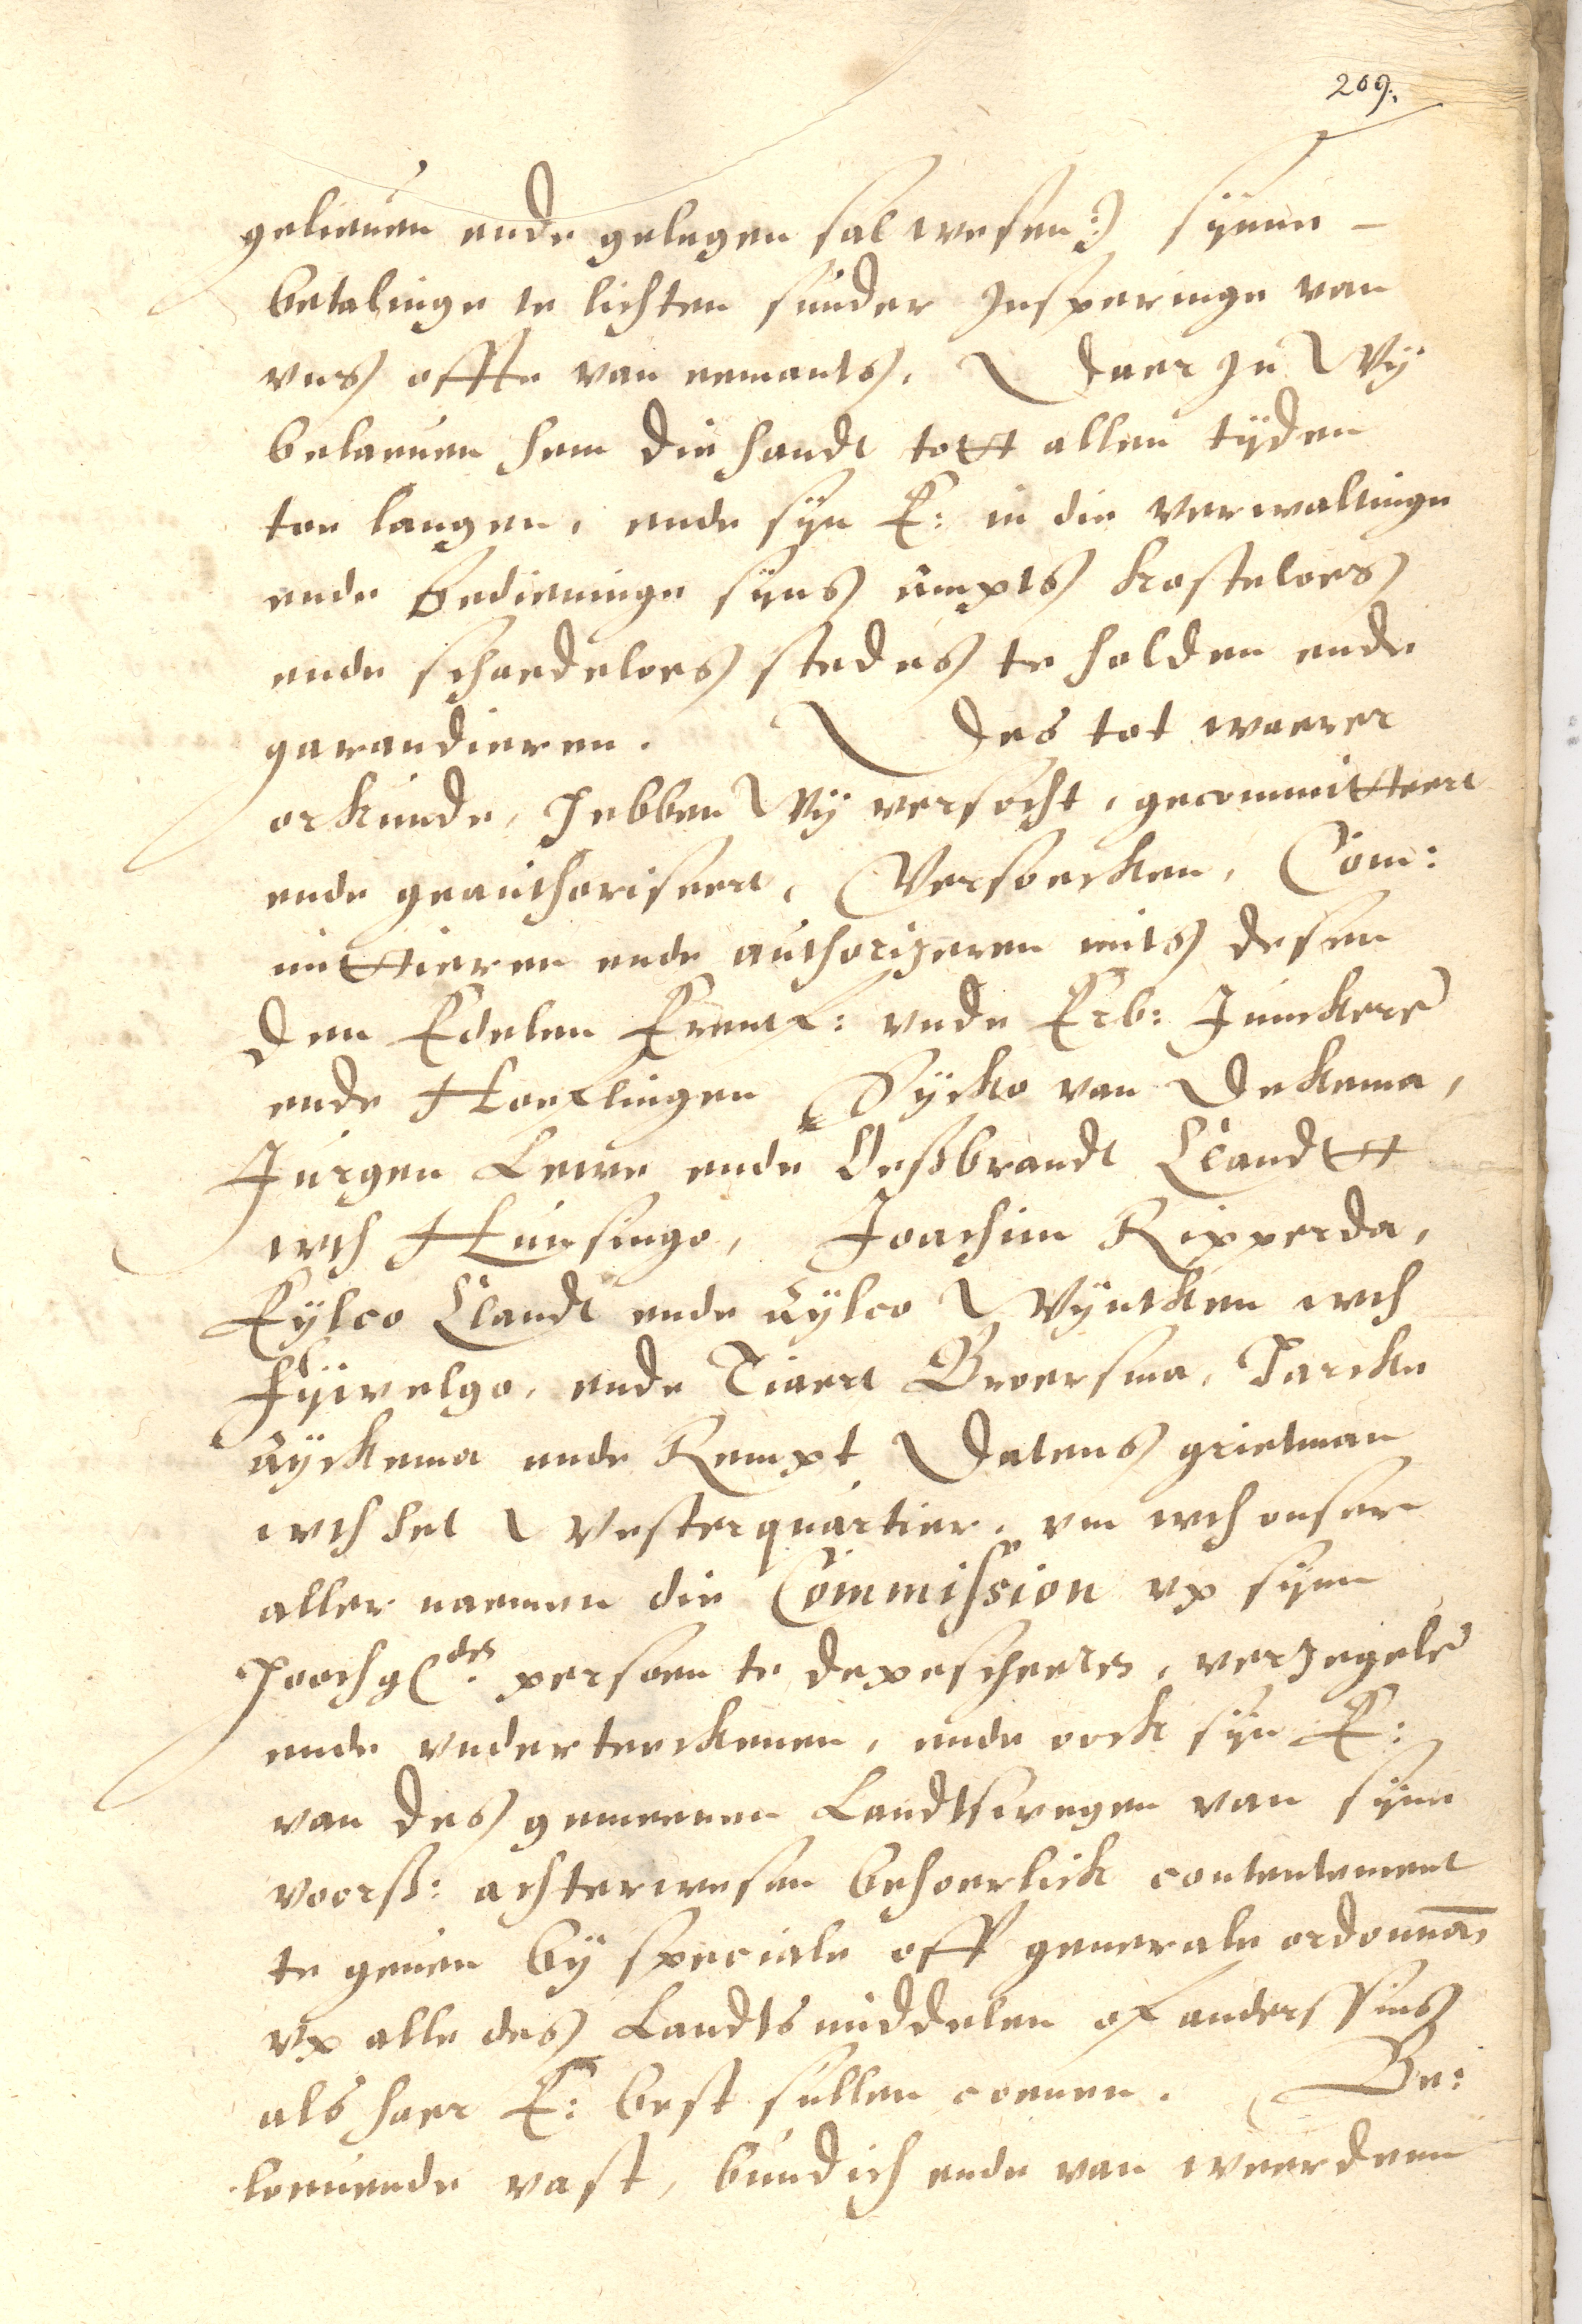 209.
gelieuen ende gelegen sal wesen:) synen -
betalinge te lichten sunder Insperinge van
vns offte van nemants. Daer In Wy
belaeuen hem die handt tott allen tyden
toe langen, ende syn E: in die verwaltinge
ende bedieninge syns ampts kosteloes
ende schaedeloes stedes te holden ende
garandieren. Des tot waerer
orkunde, hebben Wy versocht, gecommitteert
ende geauthoriseert, Versoecken, Com:
mittieren ende authorizeren mits desen
Den Edelen Erentf: vnde Erb: Junckere
ende Hoeflingen Sycko van Dekema,
Jurgen Lewe ende Oesbrandt Clandtt
wth Hunsingo, Joachim Ripperda,
Eylco Clandt ende Aylco Wyntken wth
Fywelgo, ende Tiaert Broersma, Jarcke
Ayckema ende Rempt Datens grietman
wth het Westerquartier, vm wth onser
aller naemen die Commission vp syne
Hoochg.des persoen te depescheeren, verzegele
ende vnderteeckenen, ende oock syn E:
van des gemeenen Landtswegen van syne
voorß: achterwesen behoerlick contentement
te geuen by speciale off generale ordonnan
vp alle des Landts middelen of anderssins
als haer E: best sullen coenen. Be:
loeuende vast, bundich ende van weerden